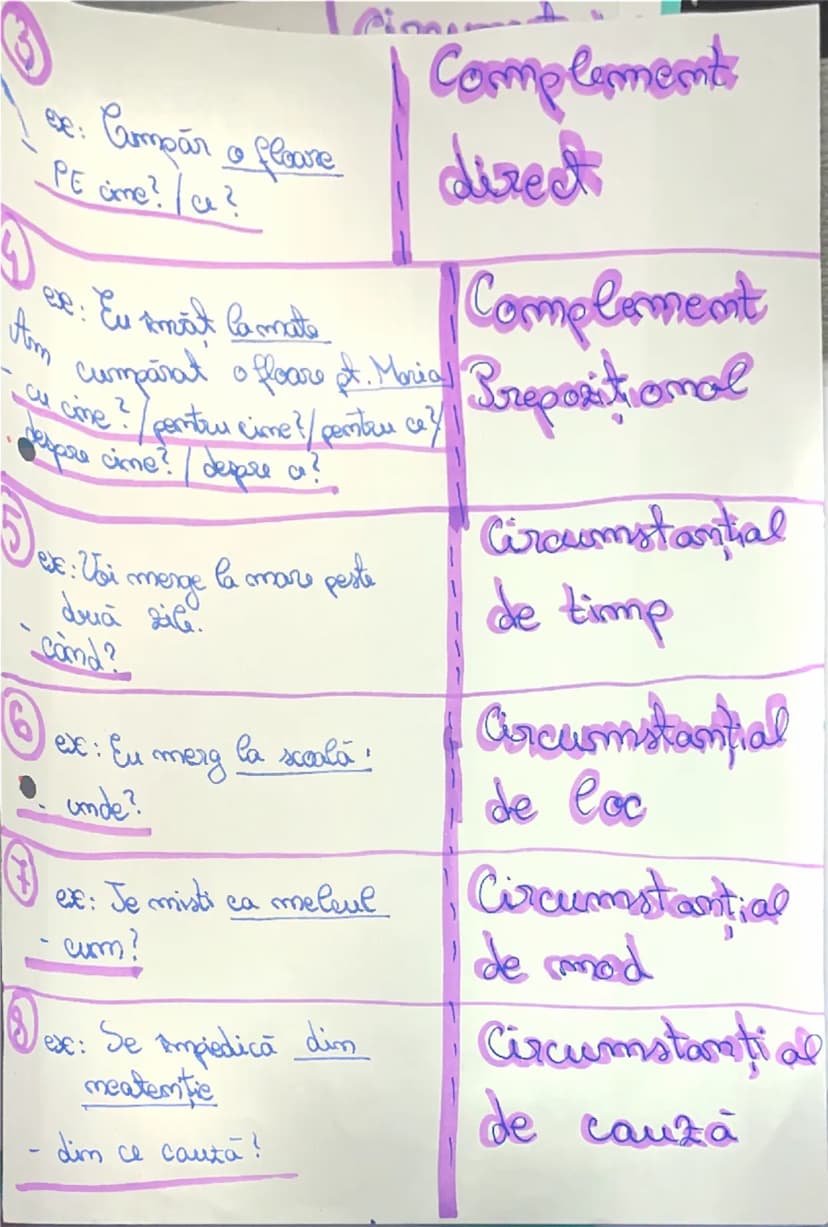 3
ex: Cumpăr o floare
- PE cine? / ce?
Complement
direct
4
ex: Eu învăț la mate
Am cumpărat o floare pt. Maria
- cu cine? / pentru cine? / pentru ce? /
despre cine? / despre ce?
Complement
Prepozițional
5
ex: Voi merge la mare peste
două zile.
- când?
Circumstanțial
de timp
6
ex: Eu merg la scoală.
- unde?
Circumstanțial
de loc
7
ex: Te misti ca melcul
- cum?
Circumstanțial
de mod
8
ex: Se împiedică din
neatenție
- din ce cauză?
Circumstanțial
de cauză